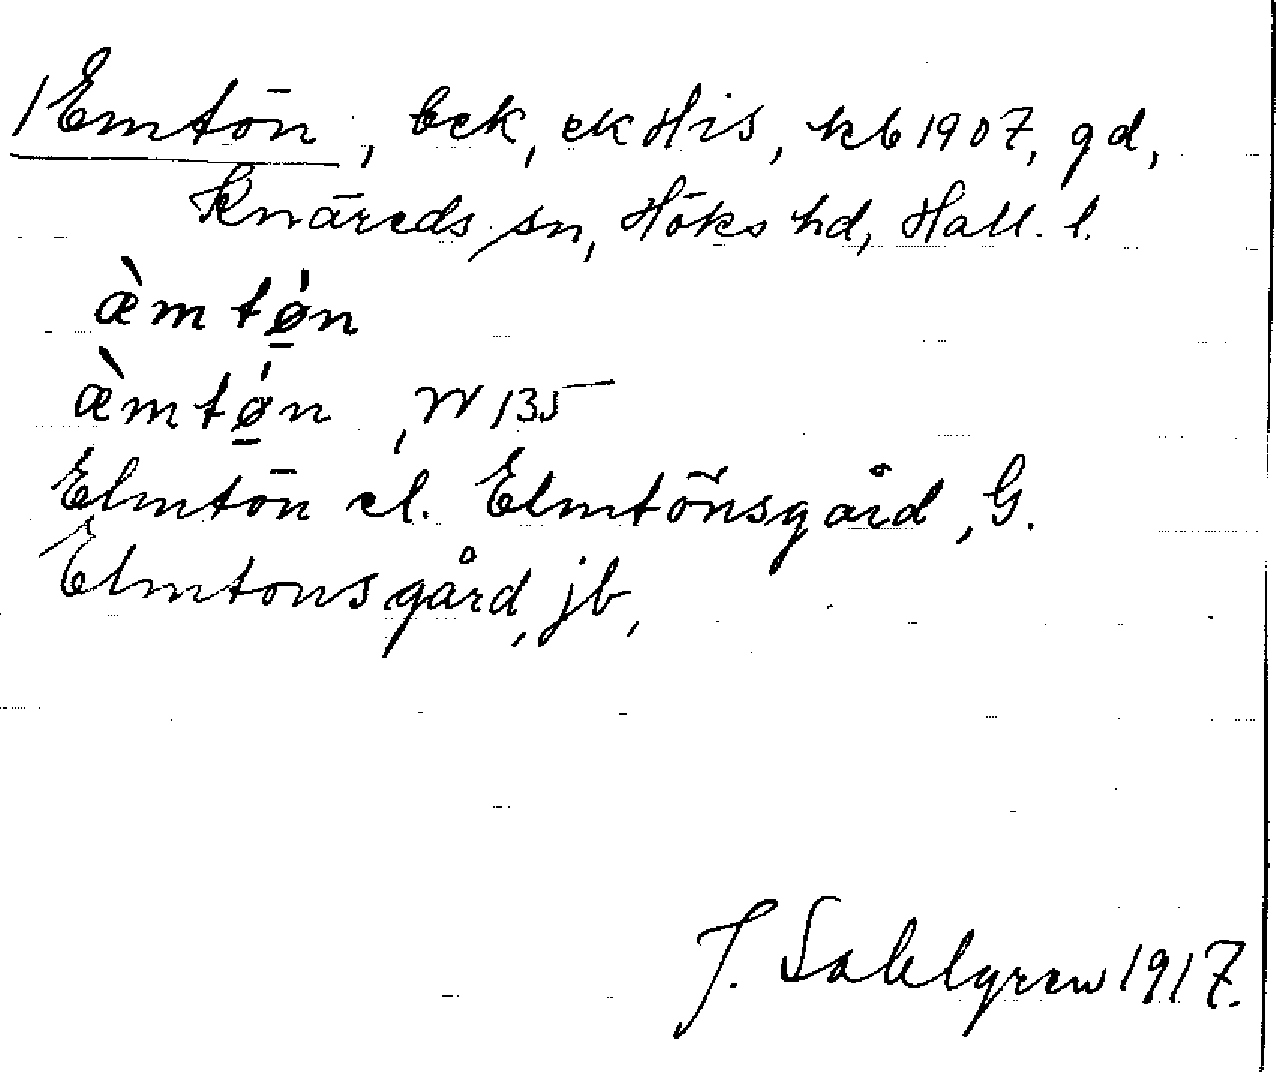 /Emtön, bek, ek His, kb 1907, gd,
Knäreds sn, Höks hd, Hall. l.
æ̀m tǿ̠n
æ̀mtǿ̠n , W 135
Elmtön el. Elmtönsgård, G.
Elmtonsgård, jb,
J. Sahlgren 1917.